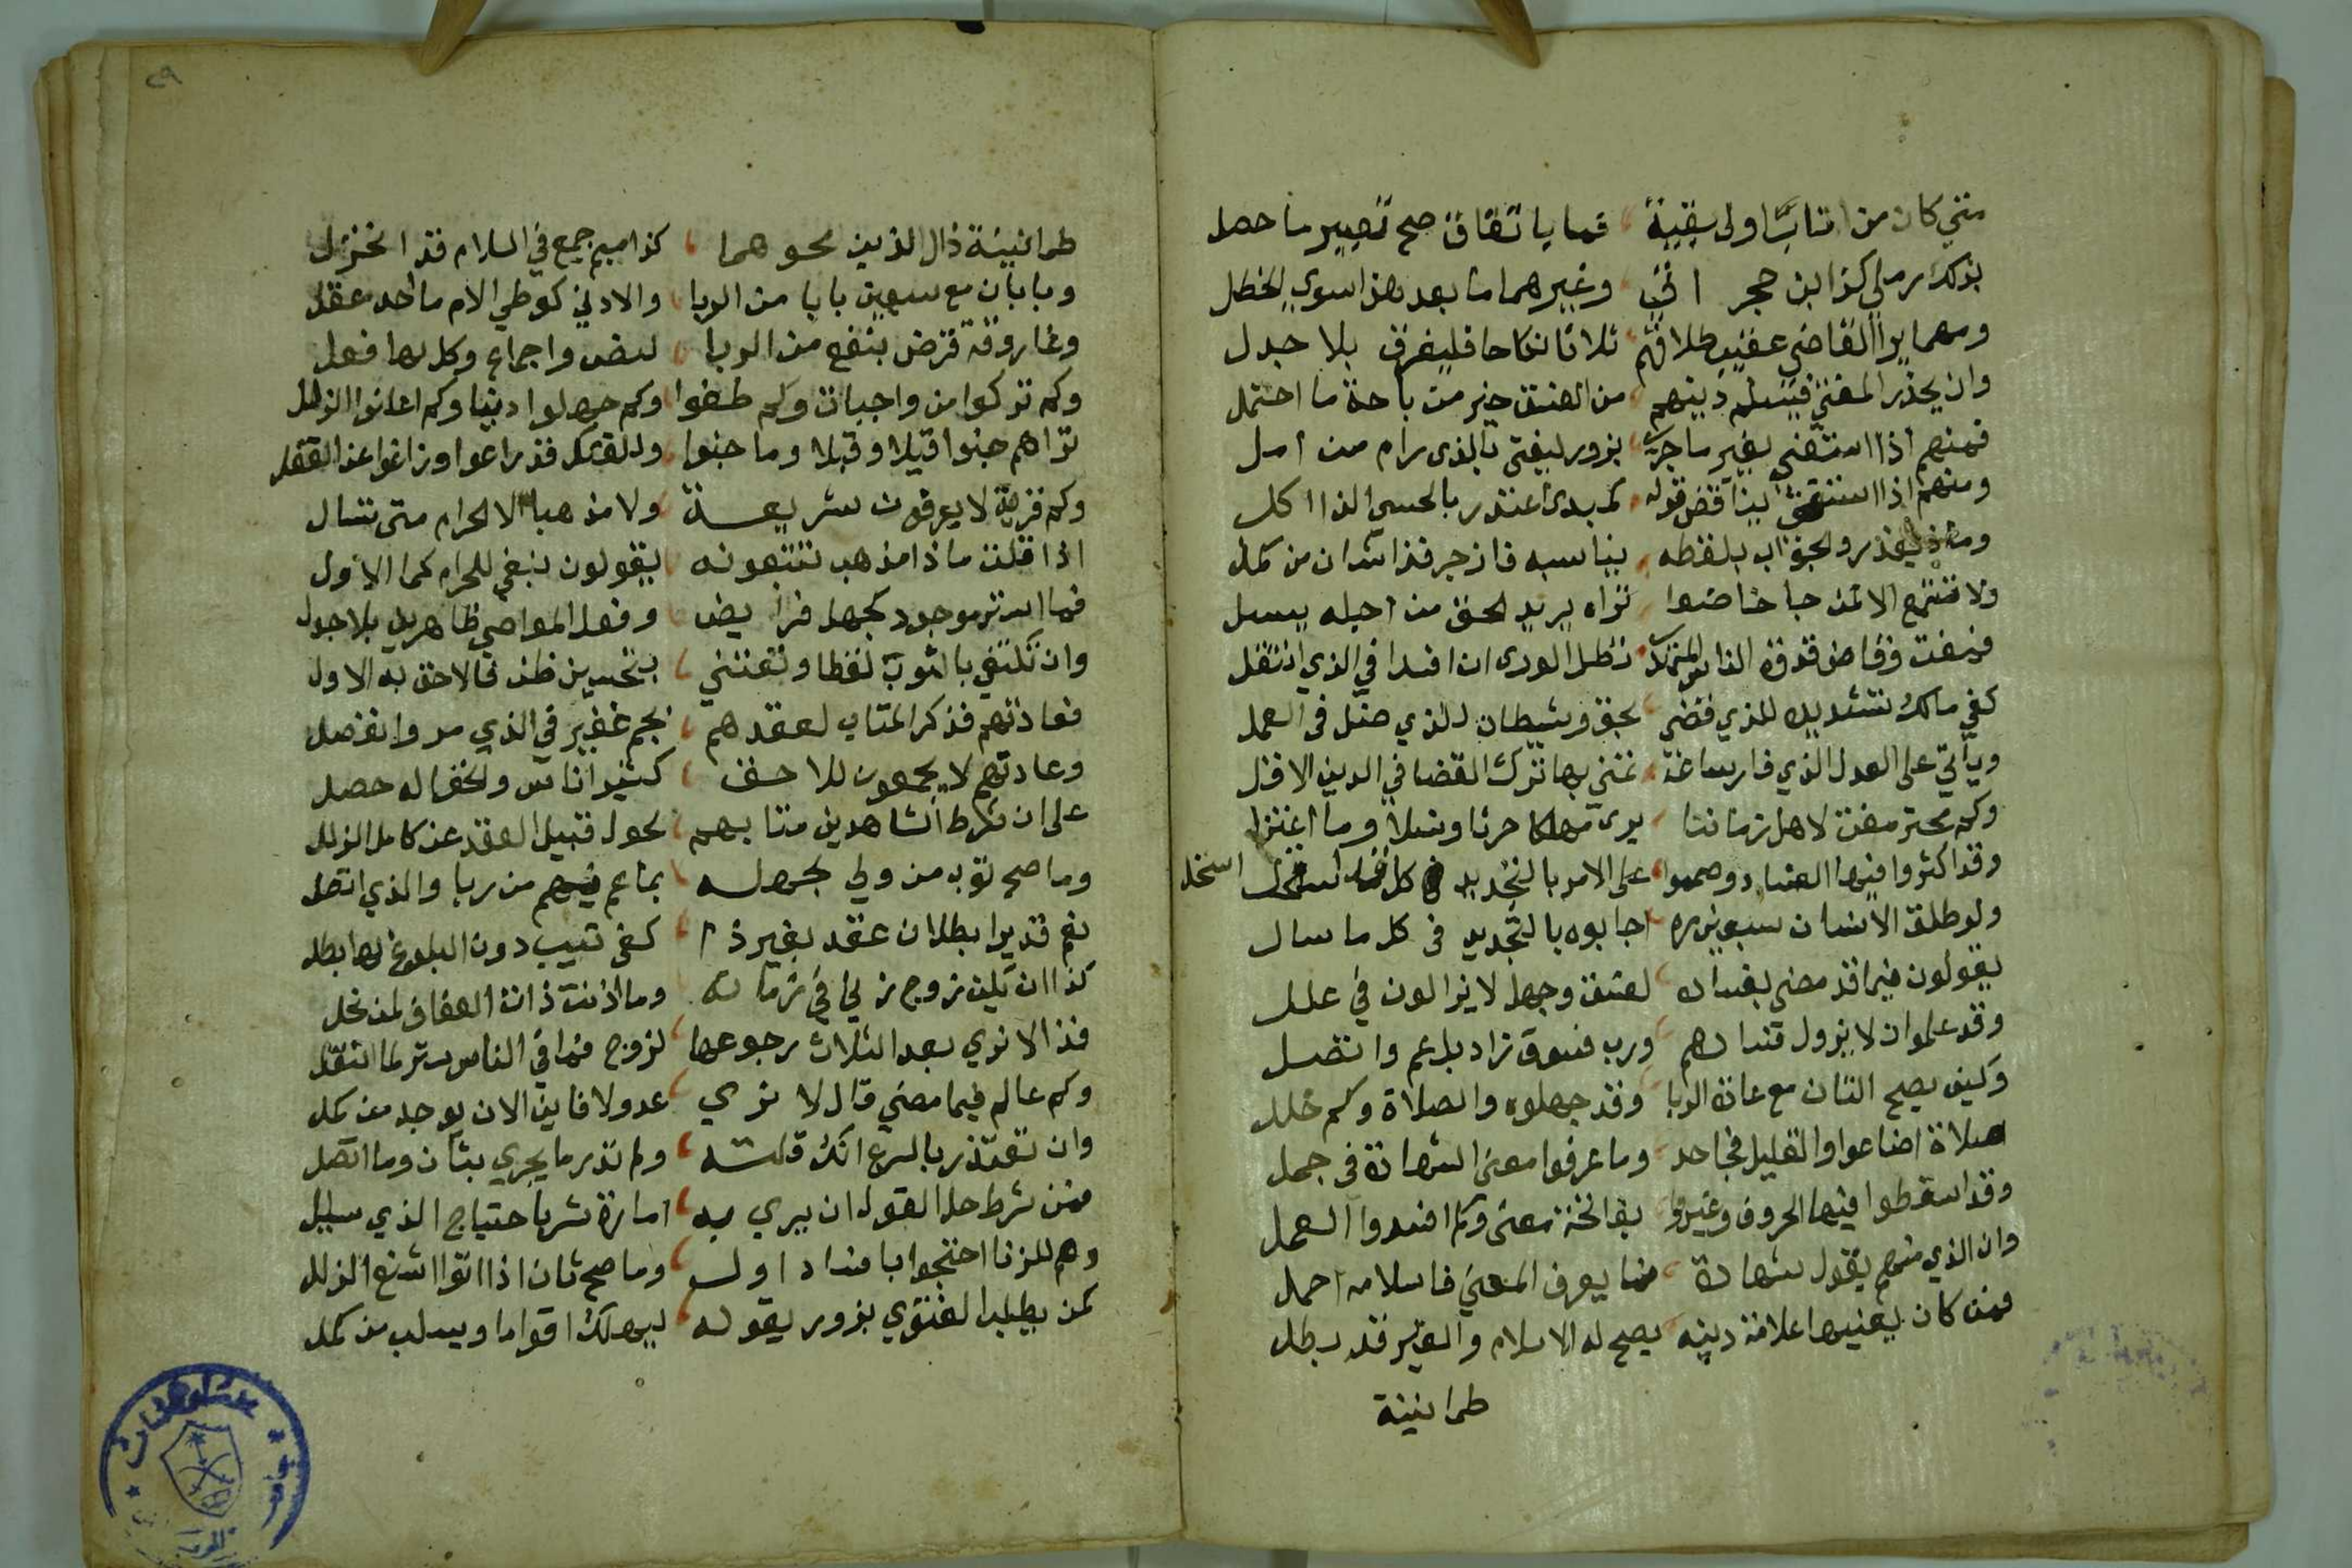 متي كان من اتاب اولى بقينة فما باتفاق صح تصيير ما حصل
بذلك رملي كذا ابن حجر افتى وغيرهما ما بعد هذا سوي الخطل
ومهما يرا القاضي عقيب طلاقهم ثلاثا نكاحا فليفرق بلا جدل
وان يحذر المفتي فيسلم دينهم من الفسق خير من باحة ما احتمل
فمنهم اذا استفتى بغير ما جرى بزور ليفتى بالذى رام من امل
ومنهم اذا استفتى يناقض قوله يبدى اعتذر بالحسى اكل
والجواب بلفظه يناسبه فازجر فذا شان من كمل
ولا تتبع الا ثمن جا خاضعا تراه يريد الحق من احيله يسل
فمفت وقاض قدوة الناس نظل الورى ان افسدا في الذي انتقل
كفى مالك تشديد للذي قضى بحق وشيطان للذي ضل في العمل
ويأتي على العدل الذي فار ساعة تمني بها ترك القضا في الدين الاقل
وكم محتر مفت لاهل زماننا يرى مهلكا حرثا ونسلا وما اعتزل
وقد اكثروا فيها الفساد وصمموا على الامر بالتجديد في كل استحل
ولو طلق الانسان سبعين مرة اجابوه بالتجديد في كل ما سال
يقولون فيما قد مضى بفساده لفسق وجهل لا يزالون في علل
وقد علموا ان لا يزول فسادهم ورب فسوق زاد بل عم واتصل
وكيف يصح الثان مع عادة الربا وقد جهلوه والصلاة وكم خلل
صلاة اضاعوا والقليل فجاحد وما عرفوا معنى الشهادة في جمل
وقد اسقطوا فيها الحروف وغيروا بفاتحة معنى وكم افسدوا العمل
وان الذي منهم يقول شهادة فما يعرف المعنى فاسلامه احمل
فمن كان يعنيها علامة دينه يصح له الاسلام والغير قد بطل
طمانينة
٢٩
طمانينة ذال الذين نحوهما كذا ميم جمع في السلام قد انخزل
وبابان مع سبعين بابا من الربا والادنى كوطي الام ما احد عقل
وغاروقة قرض بنفع من الربا لنص واجماع وكل بها فعل
وكم تركوا من واجبات وكم طغوا وكم جهلوا دينا وكم اعلنوا الزلل
تراهم جنوا قيلا وقبلا وما جنوا وللقتل قد راعوا وزاغوا عن العقل
وكم قرية لا يعرفون شريعة ولا مذهبا الا الحرام متى تسال
اذا قلت ماذا مذهب تتبعونه يقولون نبغي للحرام كما الاول
فما الستر موجود بجهل فرايض وفعل المعاصي ظاهرين بلا جول
وان تكتفي بالثوب لفظا وتعتني بتحسين ظن فالاحق به الاول
فعادتهم فذكر المتاب لعقدهم بجم غفير في الذي مر وانفصل
وعادتهم لا يجمعون للاحق كثير اناس والخفا له حصل
على ان شرط الشاهدين متابهم بحول قبيل العقد عن كامل الزلل
وما صح توب من ولي بجهله بما عم فيهم من ربا والذي اتصل
نعم قد يرا بطلان عقد بغير ذا كفى ثيب دون البلوغ لها بطل
كذا ان يكن زوج زنى في زمانه وما اذنت ذات العفاف لمن نحل
فذا لا نري بعد الثلاث رجوعها لزوج فما في الناس ستر لما انتقل
وكم عالم فيما مضى قال لا نري عدولا فاين الان يوجد من كمل
وان تعتذر بالشرع انك قلته ولم تدر ما يجري بثان وما اتصل
فمن شرط حل القول ان يري به امارة شر باحتياج الذي سال
وهم للزنا احتجوا بافساد اول وما صح ثان اذ اتوا اشنع الزلل
كمن يطلب الفتوي بزور يقوله ليهلك اقواما ويسلب من كمل